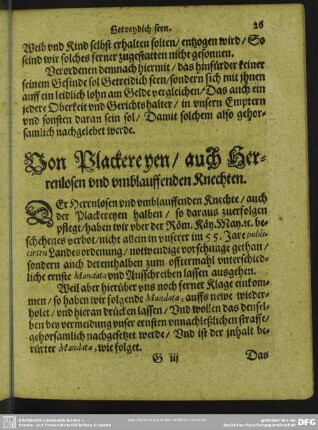 Getreydich seen. 26
Weib vnd Kind selbst erhalten solten/ entzogen wird/ So
seind wir solches ferner zugestatten nicht gesonnen.
Verordenen demnach hiermit/ das hinfürder keiner
seinem Gesinde sol Getreidich seen/ sondern sich mit jhnen
auff ein leidlich lohn am Gelde vergleichen/ Das auch ein
jedere Oberkeit vnd Gerichtshalter/ in vnsern Emptern
vnd sonsten daran sein sol/ Damit solchem also gehor-
samlich nachgelebet werde.
Von Plackereyen/ auch Her-
renlosen vnd vmblauffenden Knechten.
DEr Herrnlosen vnd vmblauffenden Knechte/ auch
der Plackereyen halben/ so daraus zuerfolgen
pflegt/ haben wir vber der Röm. Käy. May. ꝛc. be-
schehenes verbot/ nicht allein in vnserer im 55. Jare publi-
cirten Landesordenung/ notwendige vorsehunge gethan/
sondern auch derenthalben zum offtermahl vnterschied-
liche ernste Mandata vnd Ausschreiben lassen ausgehen.
Weil aber hierüber vns noch ferner Klage einkom-
men/ so haben wir folgende Mandata, auffs newe wieder-
holet/ vnd hieran drücken lassen/ Vnd wollen das densel-
ben bey vermeidung vnser ernsten vnnachleßlichen straffe/
gehorsamlich nachgesetzt werde/ Vnd ist der inhalt be-
rürter Mandata, wie folget.
G iij Das